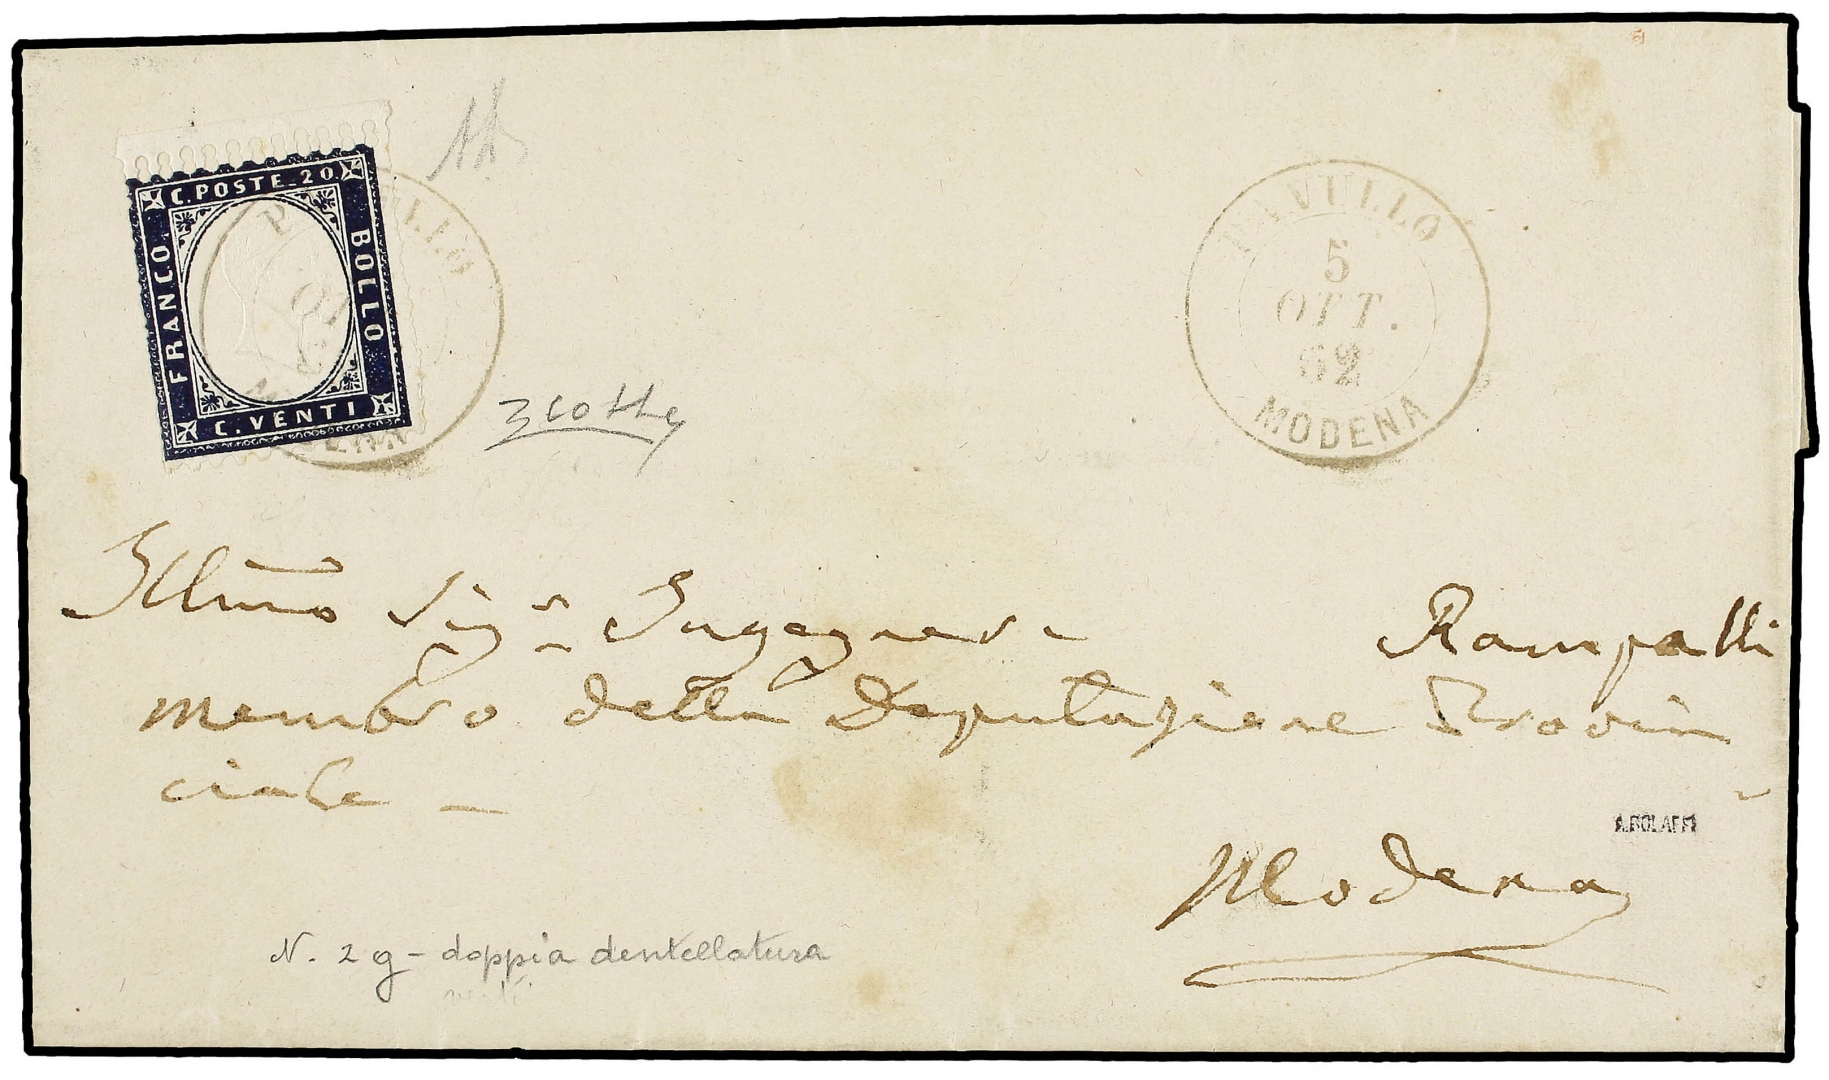 C. POSTE. 20.
FRANCO
BOLLO
C. VENTI
PAVULLO
5
OTT.
62
MODENA
Illmo Sigr Ingegnere Rampalli
membro della Deputazione Provin
ciale -
A. BOLAFFI
Modena
N. 2 g - doppia dentellatura